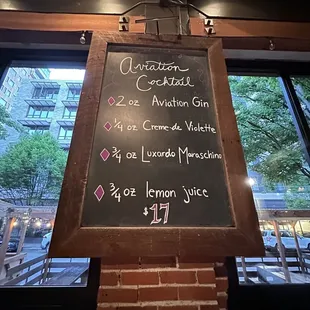 Aviation
Cocktail
2 oz Aviation Gin
1/4 oz Creme de Violette
3/4 oz Luxardo Maraschino
3/4 oz lemon juice
$17